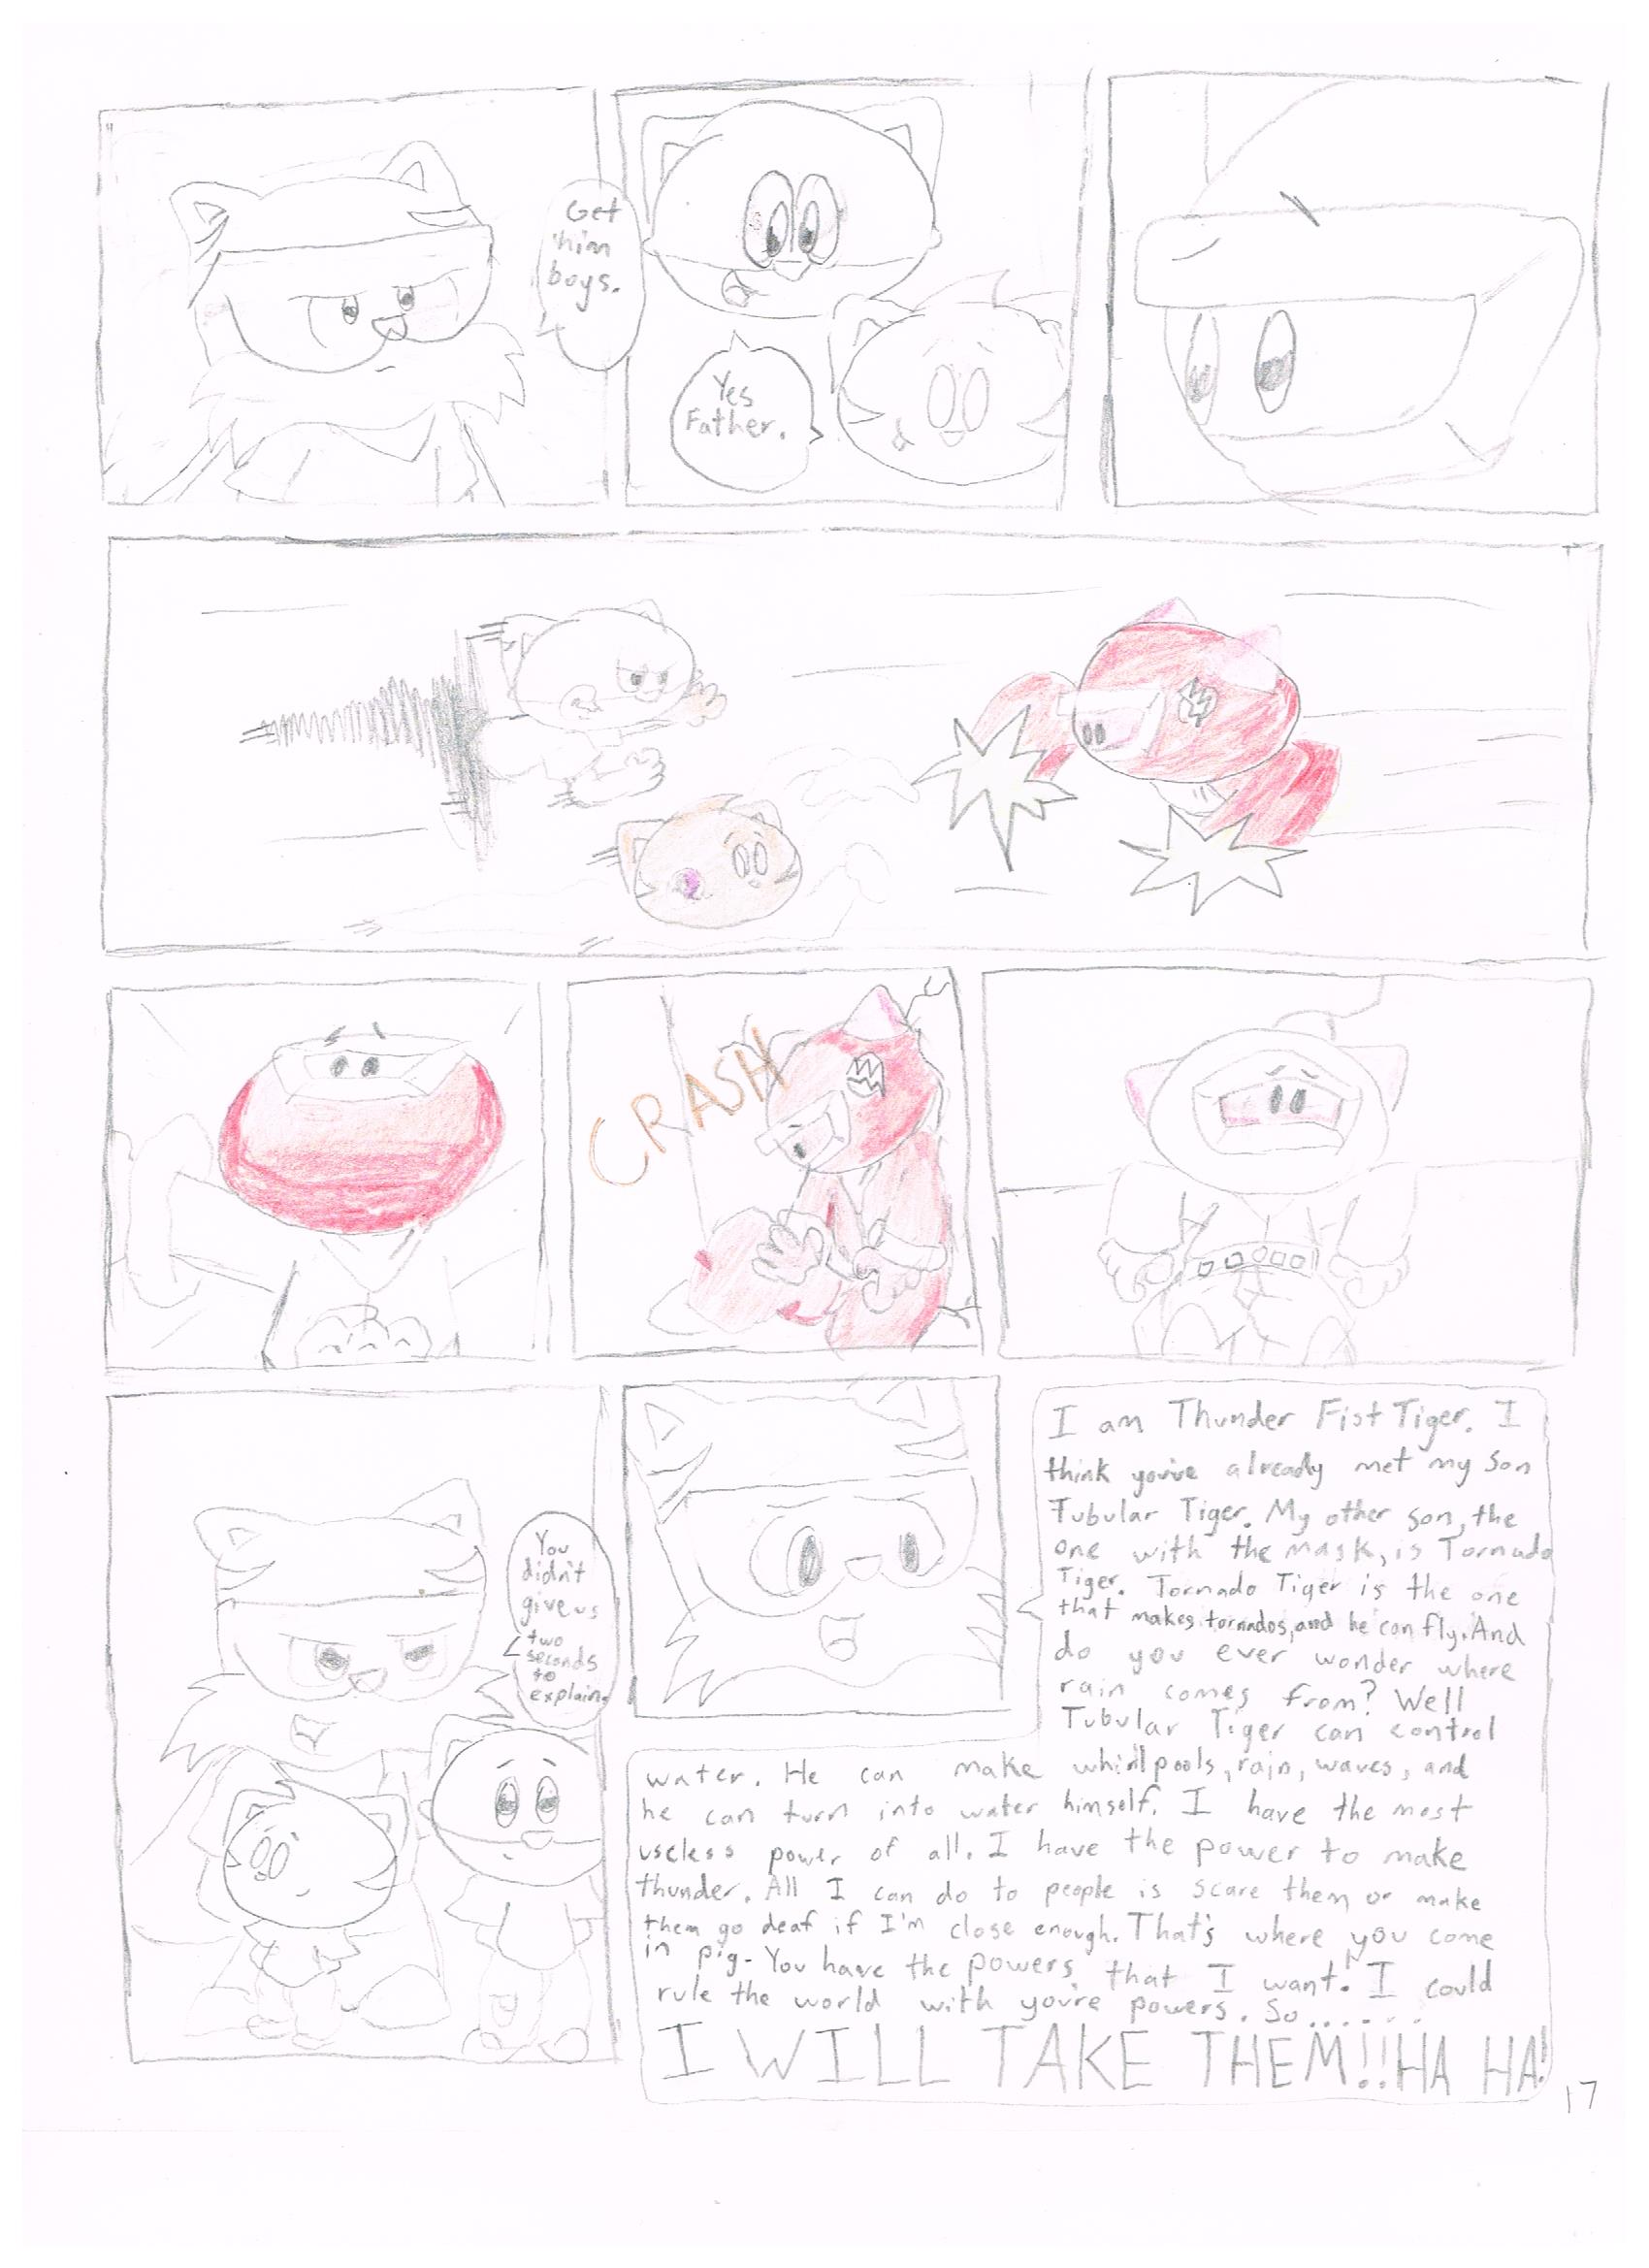 Get
him
boys.
Yes
Father.
CRASH
You
didn't
give us
two
seconds
to
explain.
I am Thunder Fist Tiger. I
think you've already met my son
Tubular Tiger. My other son, the
one with the mask, is Tornado
Tiger. Tornado Tiger is the one
that makes tornados, and he can fly. And
do you ever wonder where
rain comes from? Well
Tubular Tiger can control
water. He can make whirlpools, rain, waves, and
he can turn into water himself. I have the most
useless power of all. I have the power to make
thunder. All I can do to people is scare them or make
them go deaf if I'm close enough. That's where you come
in pig. You have the powers that I want. I could
rule the world with you're powers. So......
I WILL TAKE THEM!! HA HA!
17